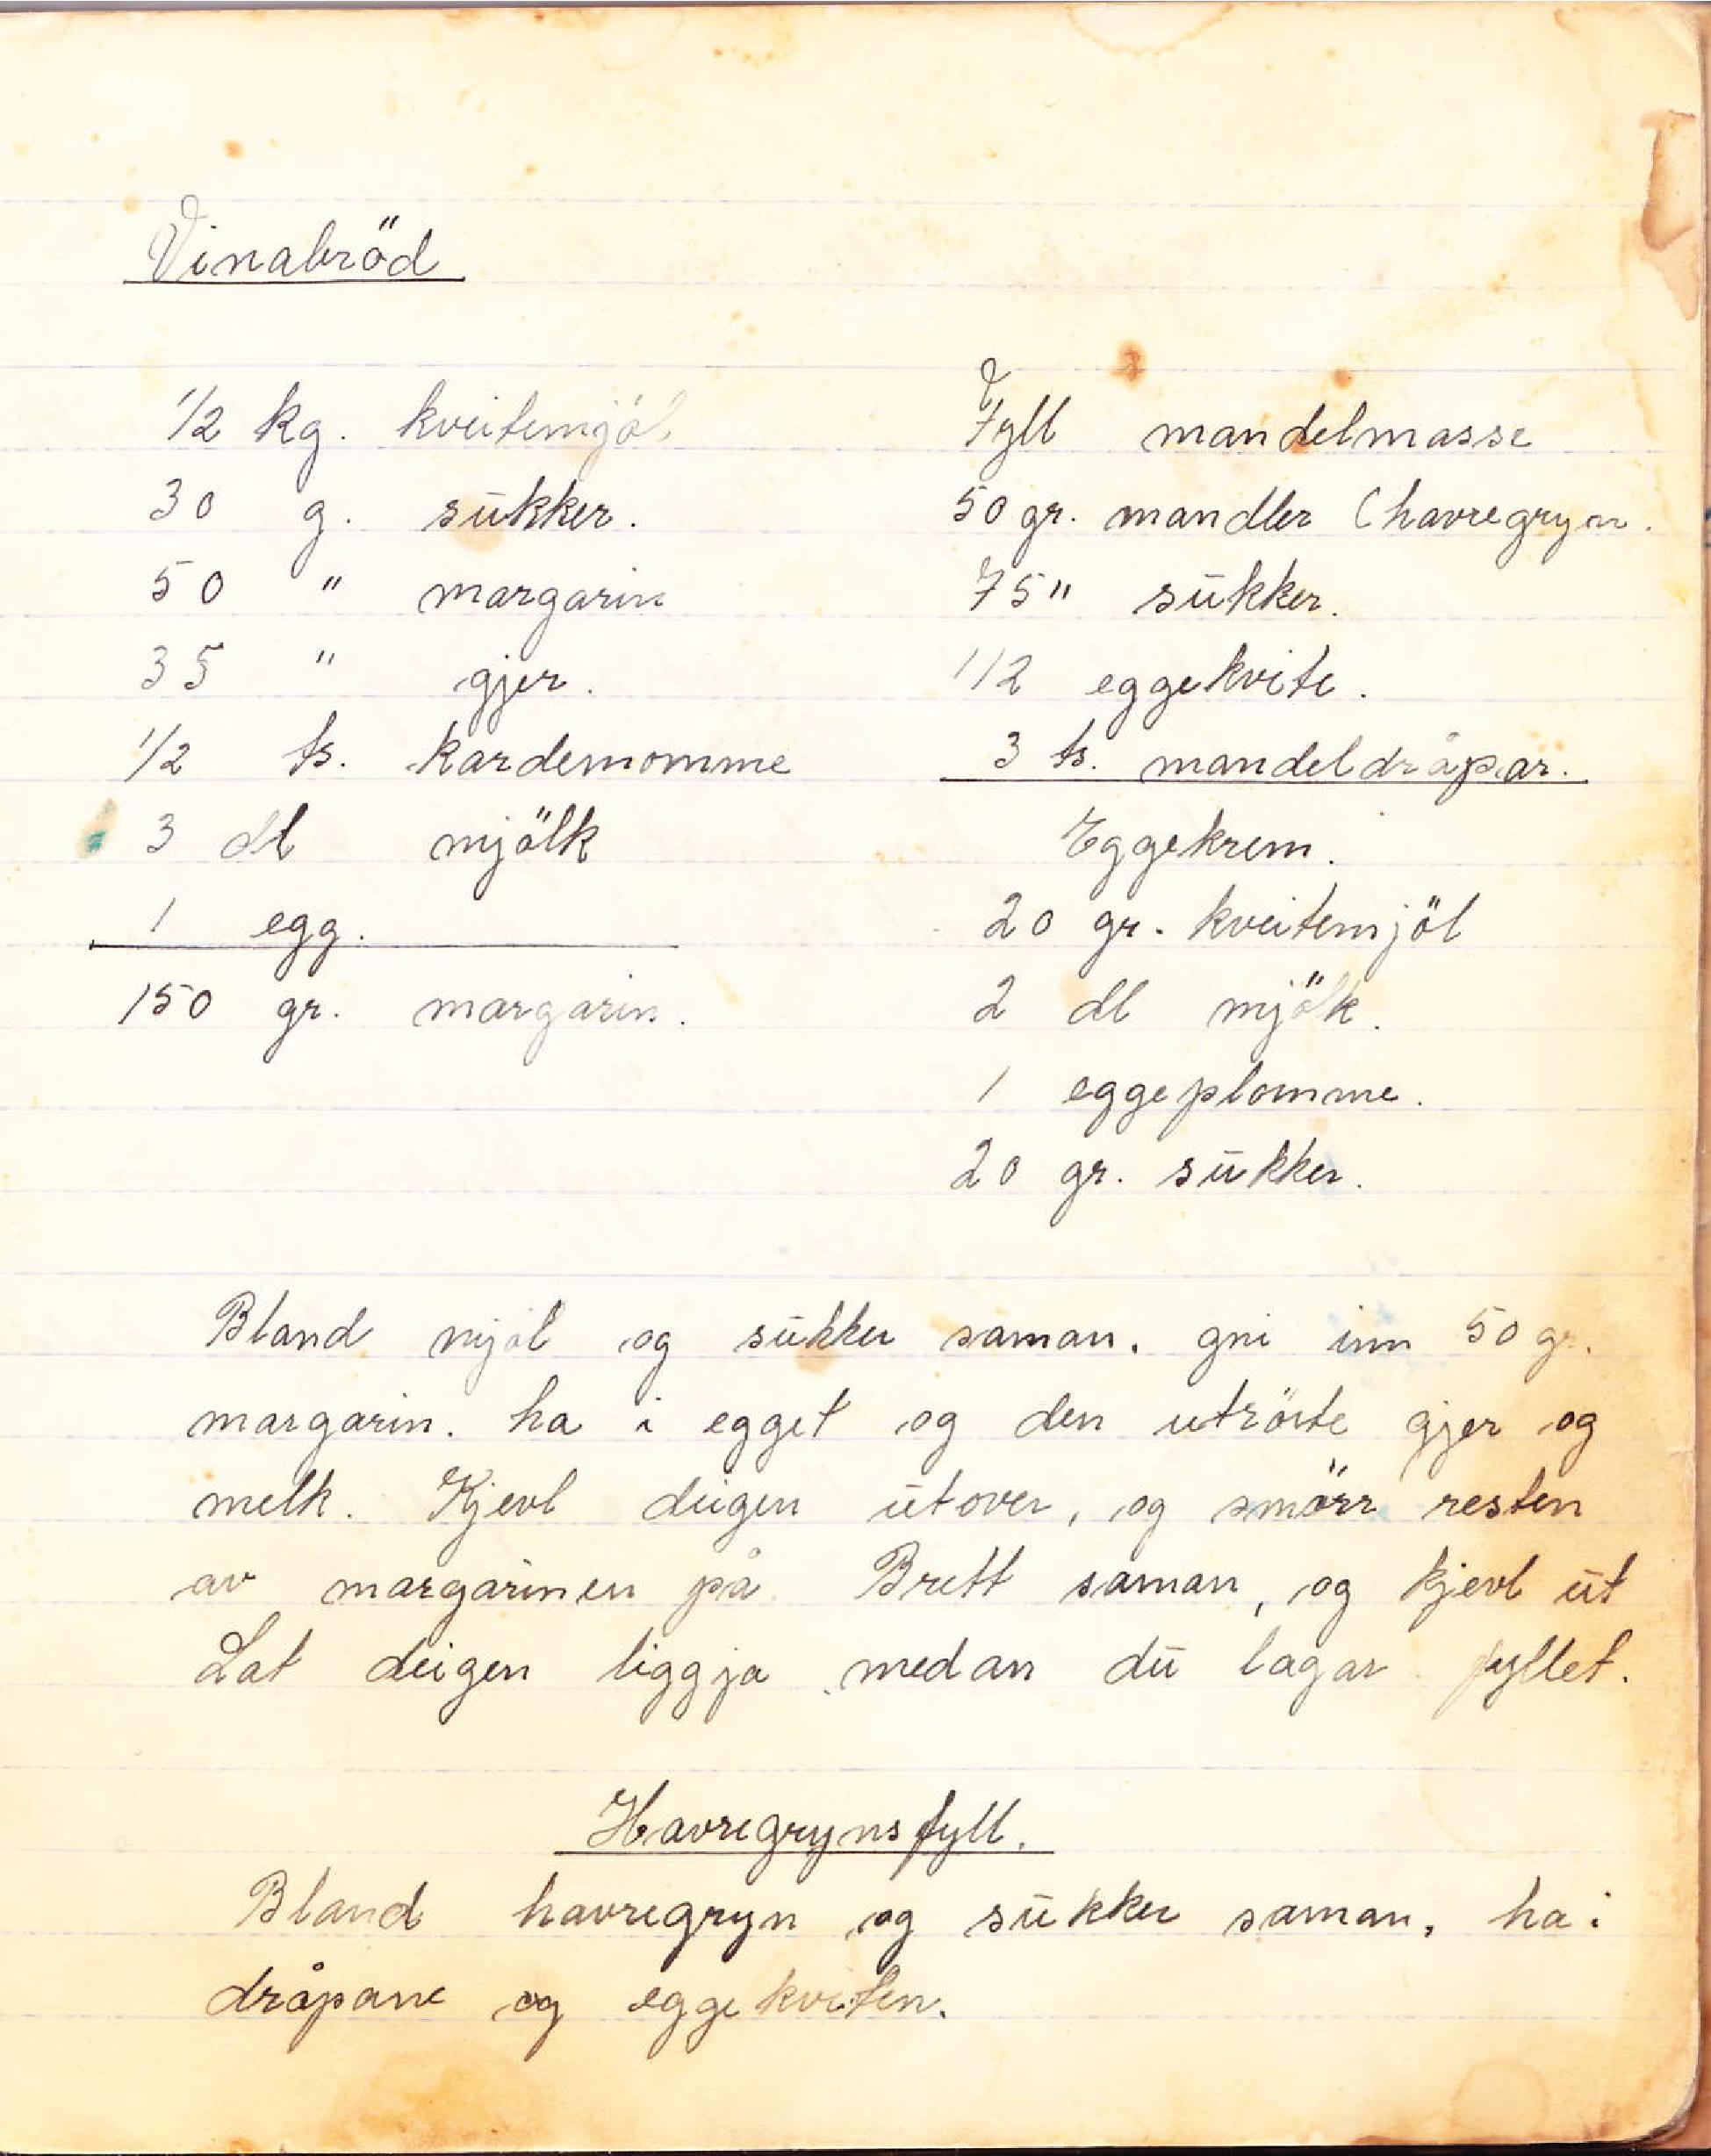 Vinabröd
1/2 kg. kveitemjöl
30 g. sukker.
50 " margarin
35 " gjer.
1/2 ts. kardemomme
3 dl mjölk
1 egg.
150 gr. margarin.
Fyll mandelmasse
50 gr. mandler (havregryn.
75 " sukker.
1/2 eggekvite.
3 ts. mandeldråpar.
Eggekrem.
20 gr. kveitemjöl
2 dl mjölk.
1 eggeplomme.
20 gr. sukker.
Bland mjöl og sukker saman. gni inn 50 gr.
margarin. ha i egget og den utrörte gjer og
melk. Kjevl deigen utover, og smörr resten
av margarinen på. Brett saman, og kjevl ut
Lat deigen liggja medan du lagar fyllet.
Havregrynsfyll.
Bland havregryn og sukker saman, ha i
dråpane og eggekviten.